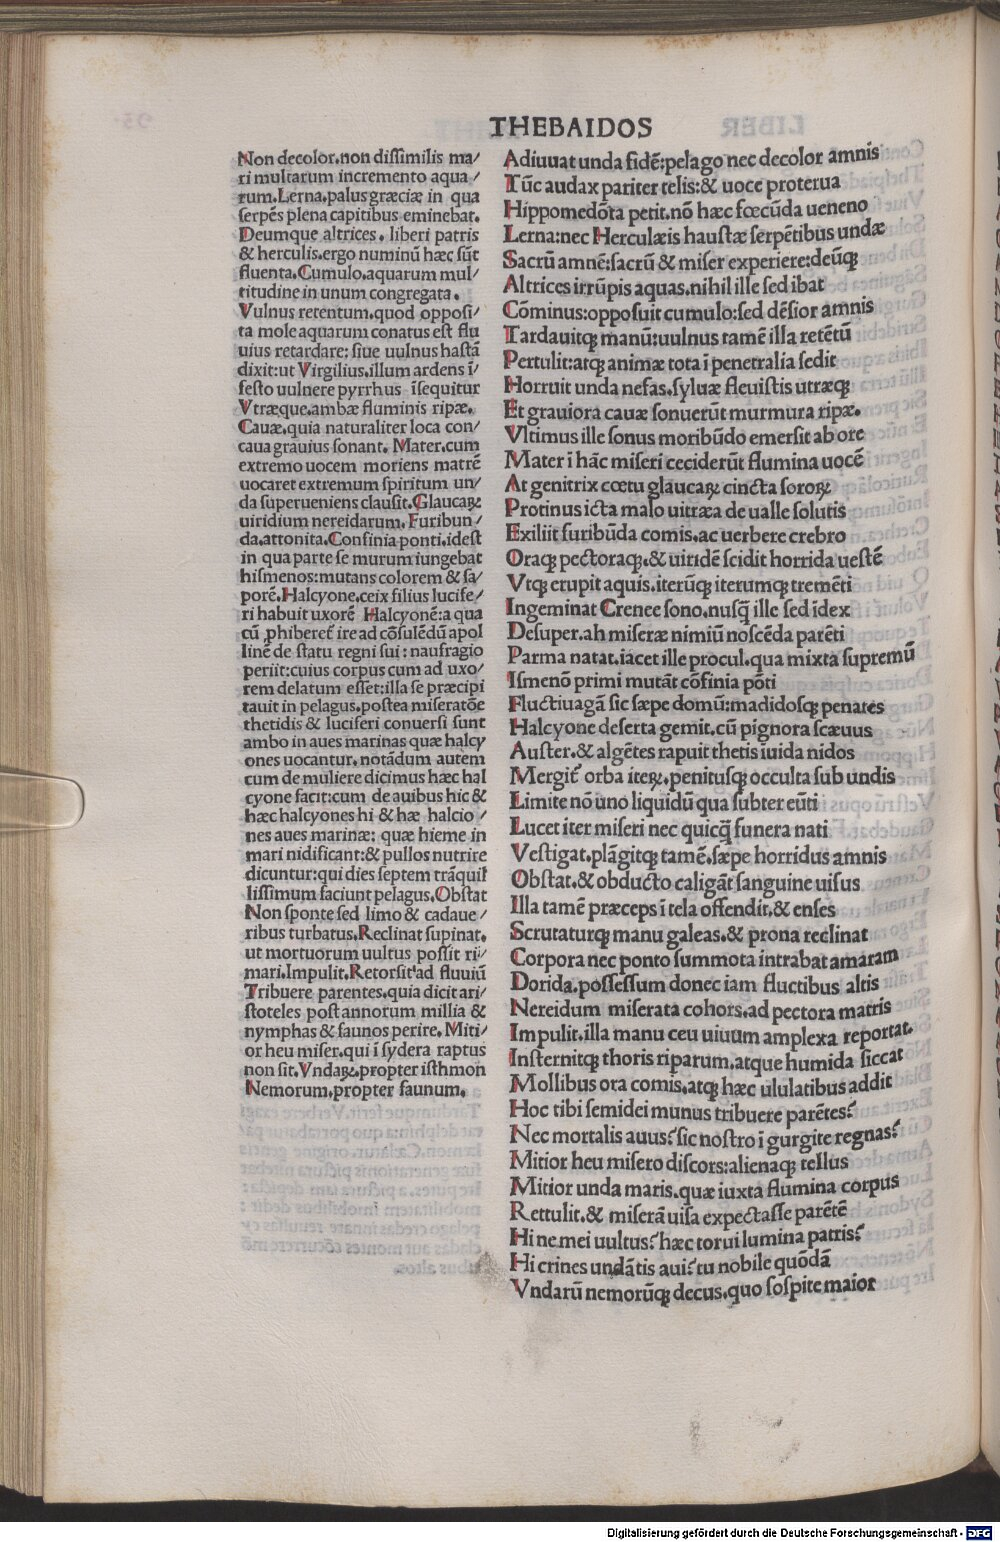 THEBAIDOS
Non decolor.non dissimilis ma/
ri multarum incremento aqua/
rum.Lerna.palus græciæ in qua
serpēs plena capitibus eminebat.
Deumque altrices. liberi patris
& herculis.ergo numinū hæc sūt
fluenta.Cumulo.aquarum mul/
titudine in unum congregata.
Vulnus retentum.quod opposi/
ta mole aquarum conatus est flu
uius retardare: siue uulnus hastā
dixit:ut Virgilius.illum ardens ī/
festo uulnere pyrrhus īsequitur
Vtræque.ambæ fluminis ripæ.
Cauæ.quia naturaliter loca con/
caua grauius sonant. Mater.cum
extremo uocem moriens matrē
uocaret extremum spiritum un/
da superueniens clausit.Glaucaꝝ
uiridium nereidarum. Furibun/
da.attonita.Confinia ponti.idest
in qua parte se murum iungebat
hismenos:mutans colorem & sa/
porē.Halcyone.ceix filius lucife/
ri habuit uxorē Halcyonē:a qua
cū ꝓhiberet̄ ire ad cōsulēdū apol
linē de statu regni sui: naufragio
periit:cuius corpus cum ad uxo/
rem delatum esset:illa se præcipi
tauit in pelagus.postea miseratōe
thetidis & luciferi conuersi sunt
ambo in aues marinas quæ halcy
ones uocantur. notādum autem
cum de muliere dicimus hæc hal
cyone facit:cum de auibus hic &
hæc halcyones hi & hæ halcio/
nes aues marinæ: quæ hieme in
mari nidificant:& pullos nutrire
dicuntur:qui dies septem trāquil
lissimum faciunt pelagus.Obstat
Non sponte sed limo & cadaue/
ribus turbatus.Reclinat supinat.
ut mortuorum uultus possit ri/
mari.Impulit.Retorsit ad fluuiū
Tribuere parentes.quia dicit ari/
stoteles post annorum millia &
nymphas & faunos perire. Miti/
or heu miser.qui ī sydera raptus
non sit.Vndaꝝ.propter isthmon
Nemorum.propter faunum.
Adiuuat unda fidē:pelago nec decolor amnis
Tūc audax pariter telis:& uoce proterua
Hippomedōta petit.nō hæc fœcūda ueneno
Lerna:nec Herculæis haustæ serpētibus undæ
Sacrū amnē:sacrū & miser experiere:deūqꝫ
Altrices irrūpis aquas.nihil ille sed ibat
Cōminus:opposuit cumulo:sed dēsior amnis
Tardauitqꝫ manū:uulnus tamē illa retētū
Pertulit:atqꝫ animæ tota ī penetralia sedit
Horruit unda nefas.syluæ fleuistis utræqꝫ
Et grauiora cauæ sonuerūt murmura ripæ.
Vltimus ille sonus moribūdo emersit ab ore
Mater ī hāc miseri ceciderūt flumina uocē
At genitrix cœtu glaucaꝝ cincta soroꝝ
Protinus icta malo uitræa de ualle solutis
Exiliit furibūda comis.ac uerbere crebro
Oraqꝫ pectoraqꝫ.& uiridē scidit horrida uestē
Vtqꝫ erupit aquis.iterūqꝫ iterumqꝫ tremēti
Ingeminat Crenee sono.nusq̄ ille sed īdex
Desuper.ah miseræ nimiū noscēda parēti
Parma natat.iacet ille procul.qua mixta supremū
Ismenō primi mutāt cōfinia pōti
Fluctiuagā sic sæpe domū:madidosqꝫ penates
Halcyone deserta gemit.cū pignora scæuus
Auster.& algētes rapuit thetis iuida nidos
Mergit̄ orba iteꝝ.penitusqꝫ occulta sub undis
Limite nō uno liquidū qua subter eūti
Lucet iter miseri nec quicq̄ funera nati
Vestigat.plāgitqꝫ tamē.sæpe horridus amnis
Obstat.& obducto caligāt sanguine uisus
Illa tamē præceps ī tela offendit.& enses
Scrutaturqꝫ manu galeas.& prona reclinat
Corpora nec ponto summota intrabat amaram
Dorida.possessum donec iam fluctibus altis
Nereidum miserata cohors.ad pectora matris
Impulit.illa manu ceu uiuum amplexa reportat.
Insternitqꝫ thoris riparum.atque humida siccat
Mollibus ora comis.atqꝫ hæc ululatibus addit
Hoc tibi semidei munus tribuere parētes?
Nec mortalis auus? sic nostro ī gurgite regnas?
Mitior heu misero discors:alienaqꝫ tellus
Mitior unda maris.quæ iuxta flumina corpus
Rettulit.& miserā uisa expectasse parētē
Hi ne mei uultus? hæc torui lumina patris?
Hi crines undātis aui? tu nobile quōdā
Vndarū nemorūqꝫ decus.quo sospite maior
Digitalisierung gefördert durch die Deutsche Forschungsgemeinschaft - DFG